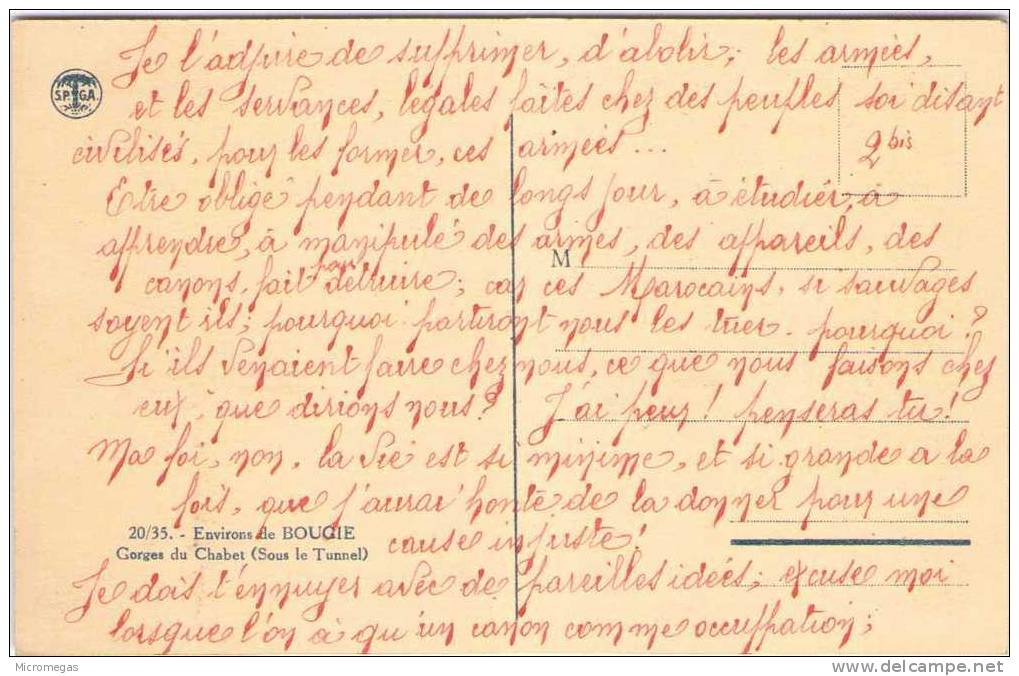 Je l'adjure de supprimer, d'abolir; les armées,
S.P.G.A.
et les servances, légales faites chez des peuples soi disant
civilisés, pour les former, ces armées...
2 bis
Etre obligé pendant de longs jour, à étudier, à
apprendre, à manipulé des armes, des appareils, des
M
canons, fait pour détruire; car ces Marocains, si sauvages
soyent ils; pourquoi partiront nous les tuer. pourquoi?
Si ils venaient faire chez nous, ce que nous faisons chez
eux, que dirions nous? J'ai peur! penseras tu!
Ma foi, non, la vie est si minime, et si grande a la
fois, que j'aurai honte de la donner pour une
20/35. - Environs de BOUGIE
Gorges du Chabet (Sous le Tunnel)
cause injuste!
Je dois t'ennuyer avec de pareilles idées; excuse moi
lorsque l'on à qu'un canon comme occuppation;
Micromegas
www.delcampe.net